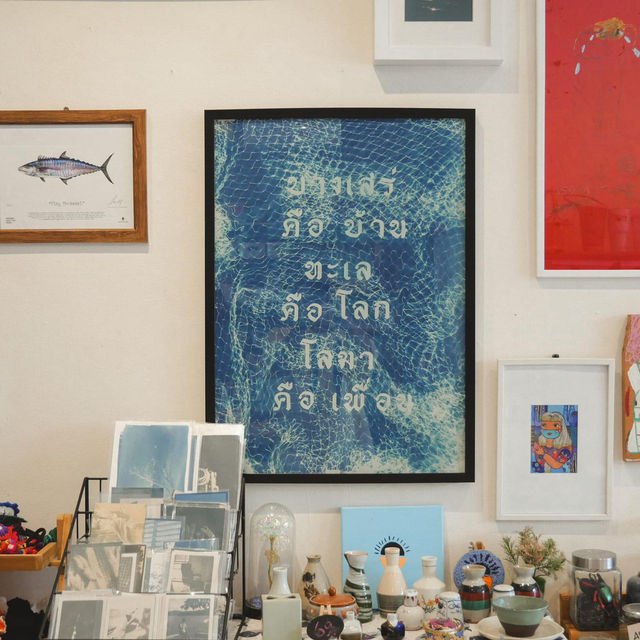 บางเสร่
คือ บ้าน
ทะเล
คือ โลก
โลมา
คือ เพื่อน
"King Mackerel"